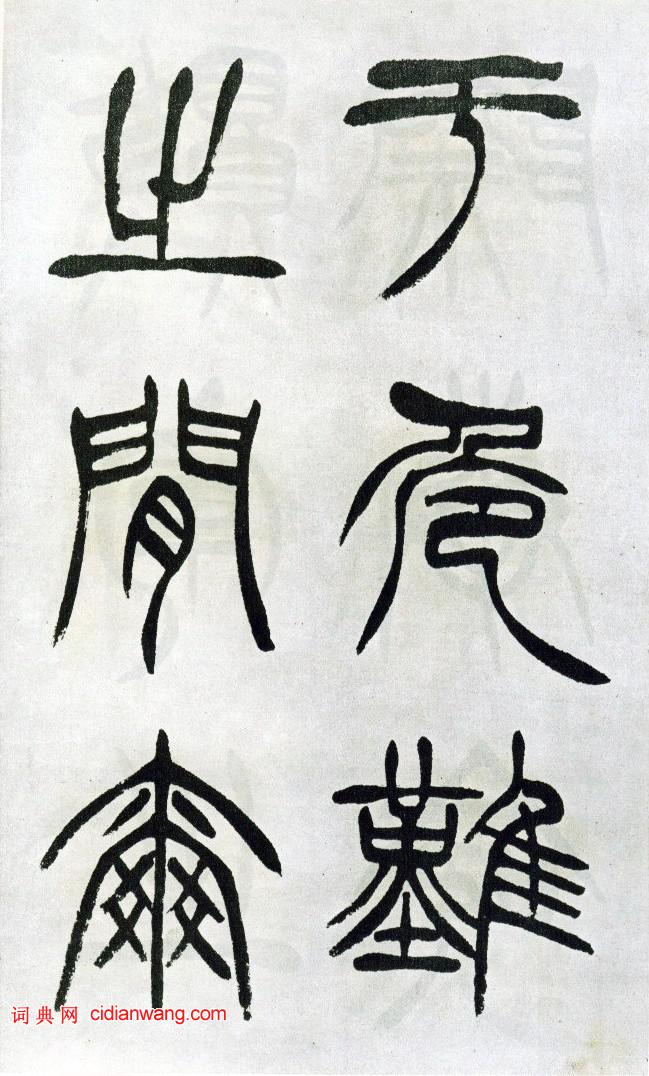 于危難
之間爾
词典网 cidianwang.com